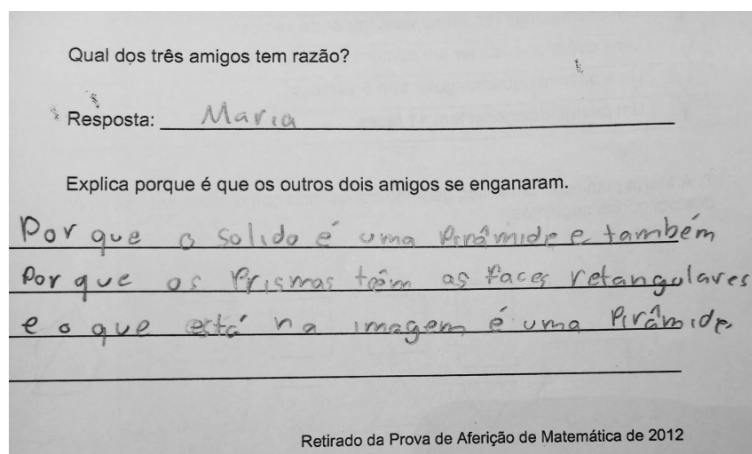 Qual dos três amigos tem razão?
Resposta: Maria
Explica porque é que os outros dois amigos se enganaram.
Por que o solido é uma Pirâmide e também
Por que os Prismas têm as faces retangulares
e o que está na imagem é uma Pirâmide
Retirado da Prova de Aferição de Matemática de 2012